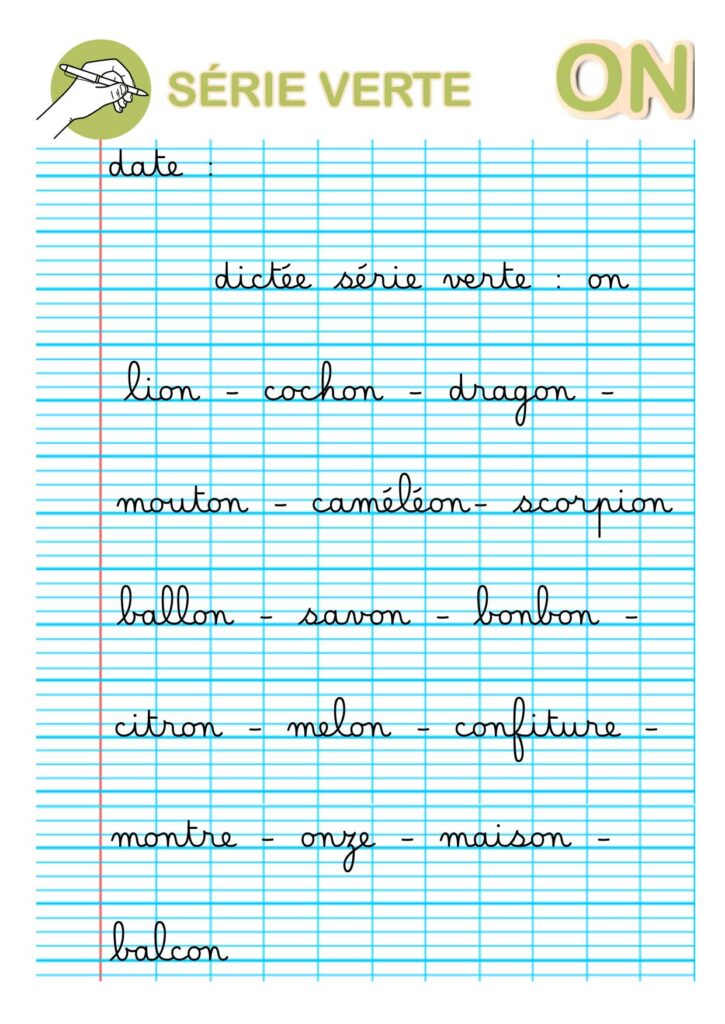 SÉRIE VERTE ON
date :
dictée série verte : on
lion - cochon - dragon -
mouton - caméléon- scorpion
ballon - savon - bonbon -
citron - melon - confiture -
montre - onze - maison -
balcon